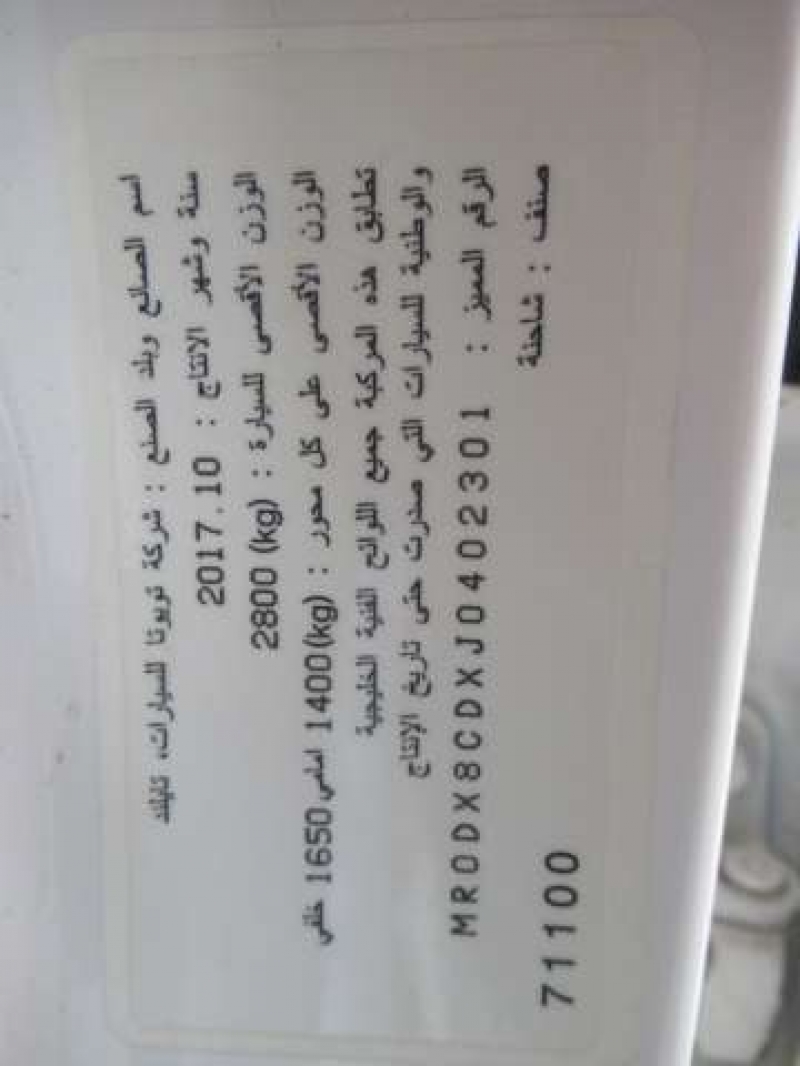 اسم الصانع وبلد الصنع : شركة تويوتا للسيارات، تايلاند
سنة وشهر الانتاج : 2017.10
الوزن الأقصى للسيارة : (kg) 2800
الوزن الأقصى على كل محور : (kg)1400 امامي 1650 خلفي
تطابق هذه المركبة جميع اللوائح الفنية الخليجية
والوطنية للسيارات التي صدرت حتى تاريخ الإنتاج
الرقم المميز : MR0DX8CDXJ0402301
صنف : شاحنة
71100